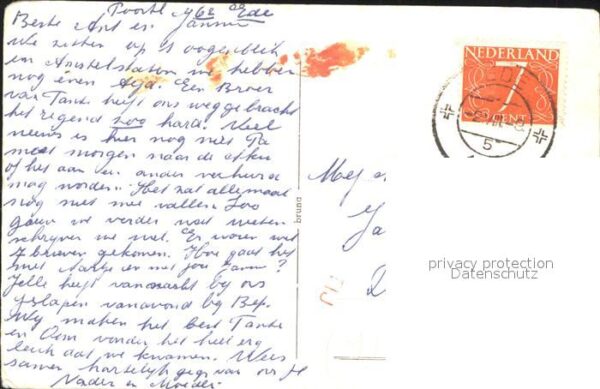 Poortl 46a Ede
Beste Ant en Jannie
We zitten op 't oogenblik
in Amstelstation we hebben
nog even tijd. Een Broer
van Tante heeft ons weggebracht
het regend zoo hard. Veel
nieuws is hier nog niet Pa
moet morgen naar de
of het aan een ander verhuurd
mag worden. Het zal allemaal
nog niet mee vallen. Zoo
gauw we verder wat weten
schrijven we wel. Er waren wel
7 brieven gekomen. Hoe gaat het
met en met jou Jannie?
Jelle heeft vannacht bij ons
geslapen vanavond bij Bep.
Wij maken het best Tante
en Oom vonden het heel erg
leuk dat we kwamen. Wees
samen hartelijk gegr van ons
Vader en Moeder
bruna
NEDERLAND
7
CENT
5
Mej
Ja
privacy protection
Datenschutz